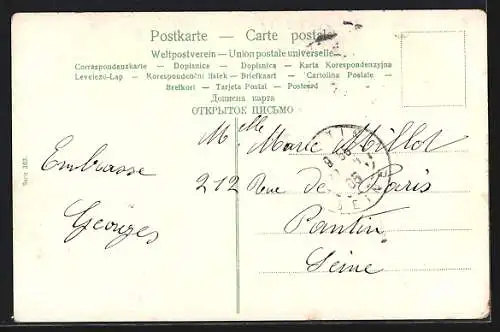 Postkarte — Carte postale
Weltpostverein — Union postale universelle
Correspondenzkarte — Dopisnice — Dopisnica — Karta Korespondenzyjna
Levelező-Lap — Korespondenční lístek — Briefkaart — Cartolina Postale —
Brefkort — Tarjeta Postal — Postcard
Дописна карта
ОТКРЫТОЕ ПИСЬМО
Mlle Marie Millot
212 Rue de Paris
Pantin
Seine
Embrasse
Georges
Serie 367